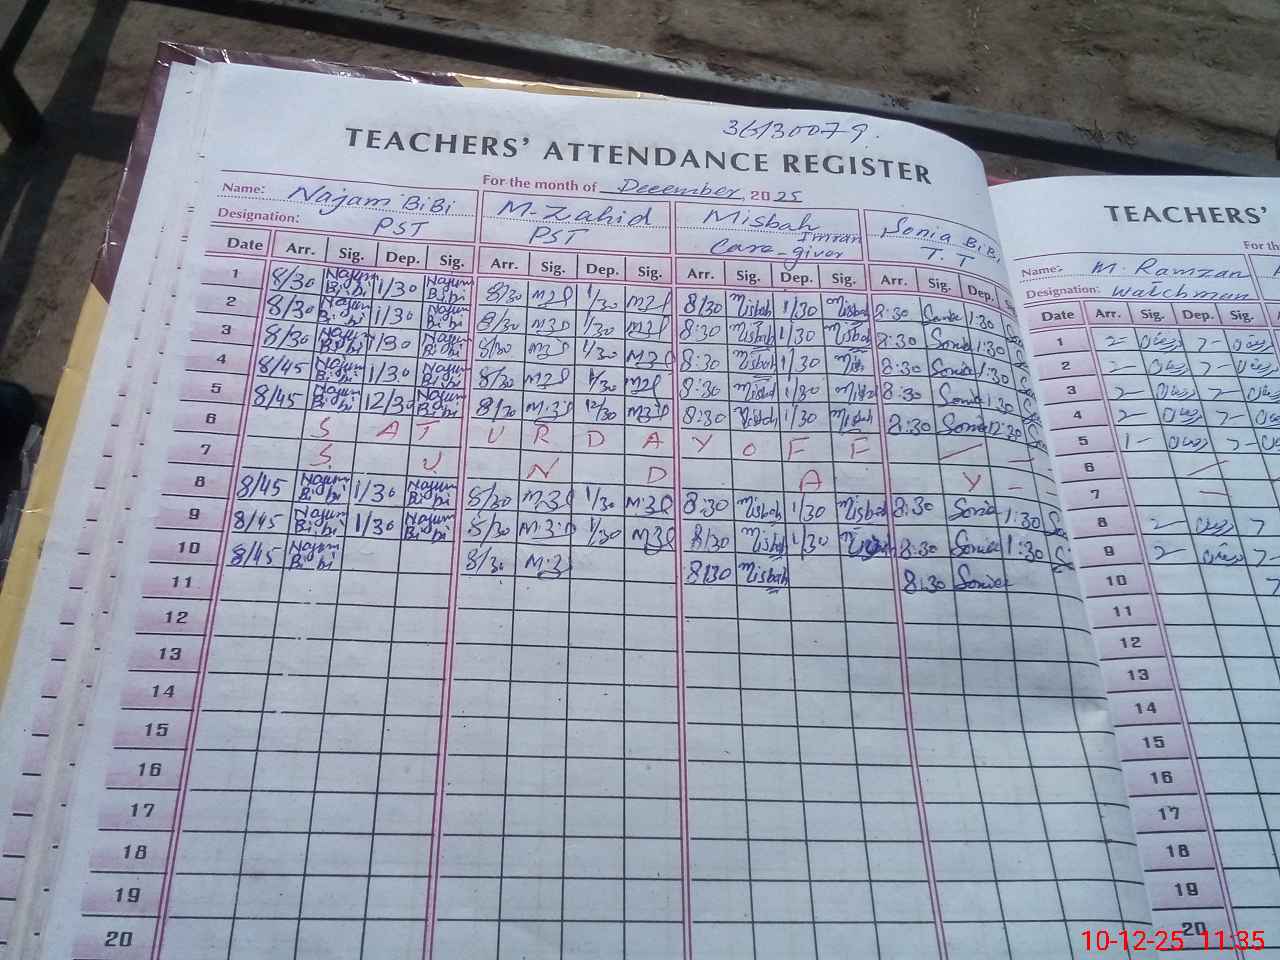 36130079.
TEACHERS' ATTENDANCE REGISTER
For the month of December, 2025
Name: Najam BiBi M. Zahid Misbah Imran Sonia BiBi
Designation: PST PST Care-giver T.T
Date Arr. Sig. Dep. Sig. Arr. Sig. Dep. Sig. Arr. Sig. Dep. Sig. Arr. Sig. Dep.
1 8/30 Najam Bibi 1/30 Najam Bibi 8/30 1/30 8/30 Misbah 1/30 Misbah 8:30 Sonia 1:30
2 8/30 Najam Bibi 1/30 Najam Bibi 8/30 1/30 8:30 Misbah 1/30 Misbah 8:30 Sonia 1:30
3 8/30 Najam Bibi 1/30 Najam Bibi 8/30 1/30 8:30 Misbah 1/30 8:30 Sonia 1:30
4 8/45 Najam Bibi 1/30 Najam Bibi 8/30 1/30 8:30 Misbah 1/30 Misbah 8:30 Sonia 1:30
5 8/45 Najam Bibi 12/30 Najam Bibi 8/30 12/30 8:30 Misbah 1/30 Misbah 8:30 Sonia 12:30
6 S A T U R D A Y O F F
7 S U N D A Y
8 8/45 Najam Bibi 1/30 Najam Bibi 8/30 1/30 8:30 Misbah 1/30 Misbah 8:30 Sonia 1:30
9 8/45 Najam Bibi 1/30 Najam Bibi 8/30 1/30 8/30 Misbah 1/30 8:30 Sonia 1:30
10 8/45 Najam Bibi 8/30 8/30 Misbah 8:30 Sonia
11
12
13
14
15
16
17
18
19
20
TEACHERS'
Name: M. Ramzan
Designation: Watchman
Date Arr. Sig. Dep. Sig.
1
2
3
4
5
6
7
8
9
10
11
12
13
14
15
16
17
18
19
20
10-12-25 11:35